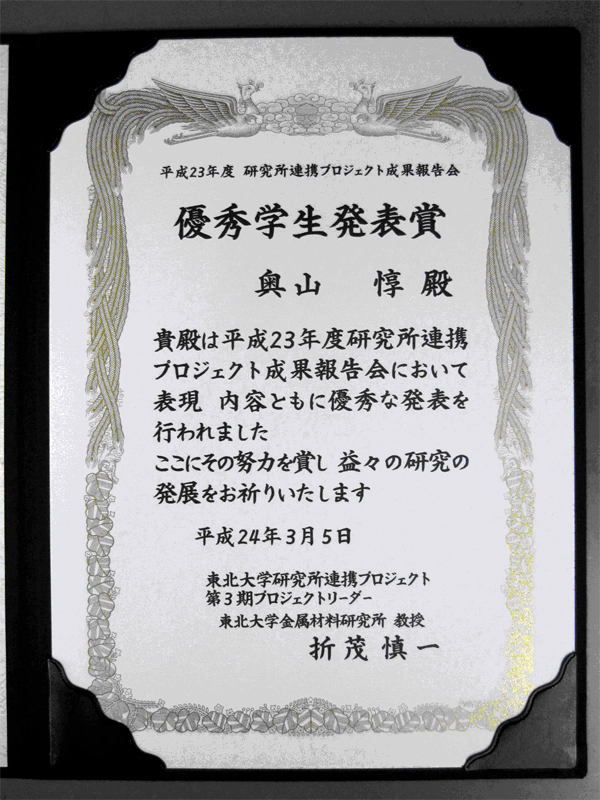 平成23年度 研究所連携プロジェクト成果報告会
優秀学生発表賞
奥山 惇 殿
貴殿は平成23年度研究所連携
プロジェクト成果報告会において
表現 内容ともに優秀な発表を
行われました
ここにその努力を賞し 益々の研究の
発展をお祈りいたします
平成24年3月5日
東北大学研究所連携プロジェクト
第3期プロジェクトリーダー
東北大学金属材料研究所 教授
折茂 慎一